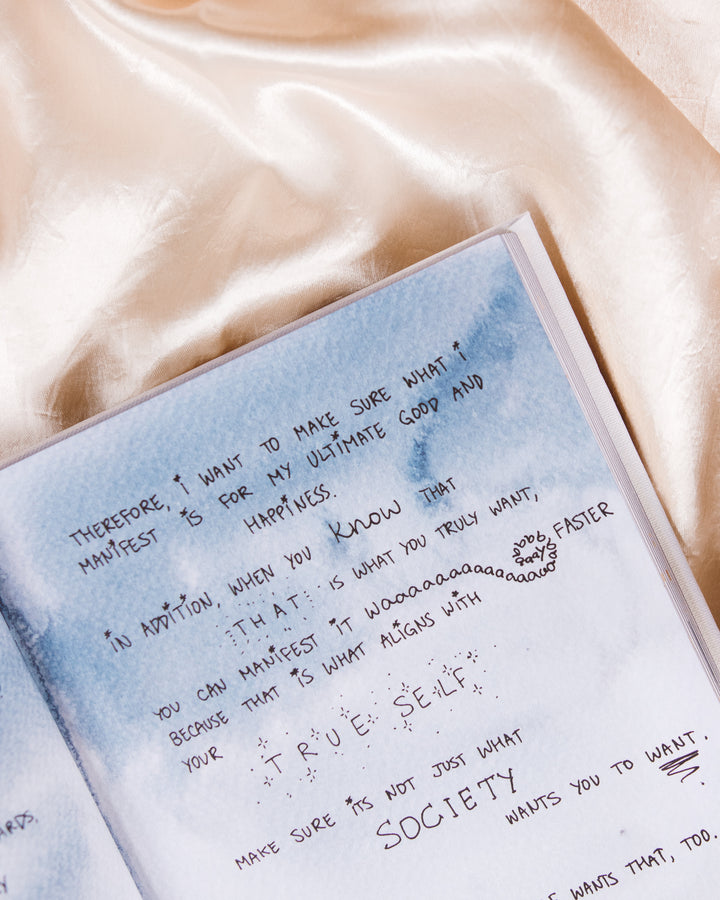 THEREFORE, i WANT TO MAKE SURE WHAT i
MANiFEST iS FOR MY ULTiMATE GOOD AND
HAPPiNESS.
iN ADDiTiON, WHEN YOU KNOW THAT
THAT iS WHAT YOU TRULY WANT,
YOU CAN MANiFEST iT waaaaaaaaaaaaaaaaaaay FASTER
BECAUSE THAT iS WHAT ALiGNS WiTH
YOUR TRUE SELF
MAKE SURE iTS NOT JUST WHAT
SOCIETY WANTS YOU TO WANT.
WANTS THAT, TOO.